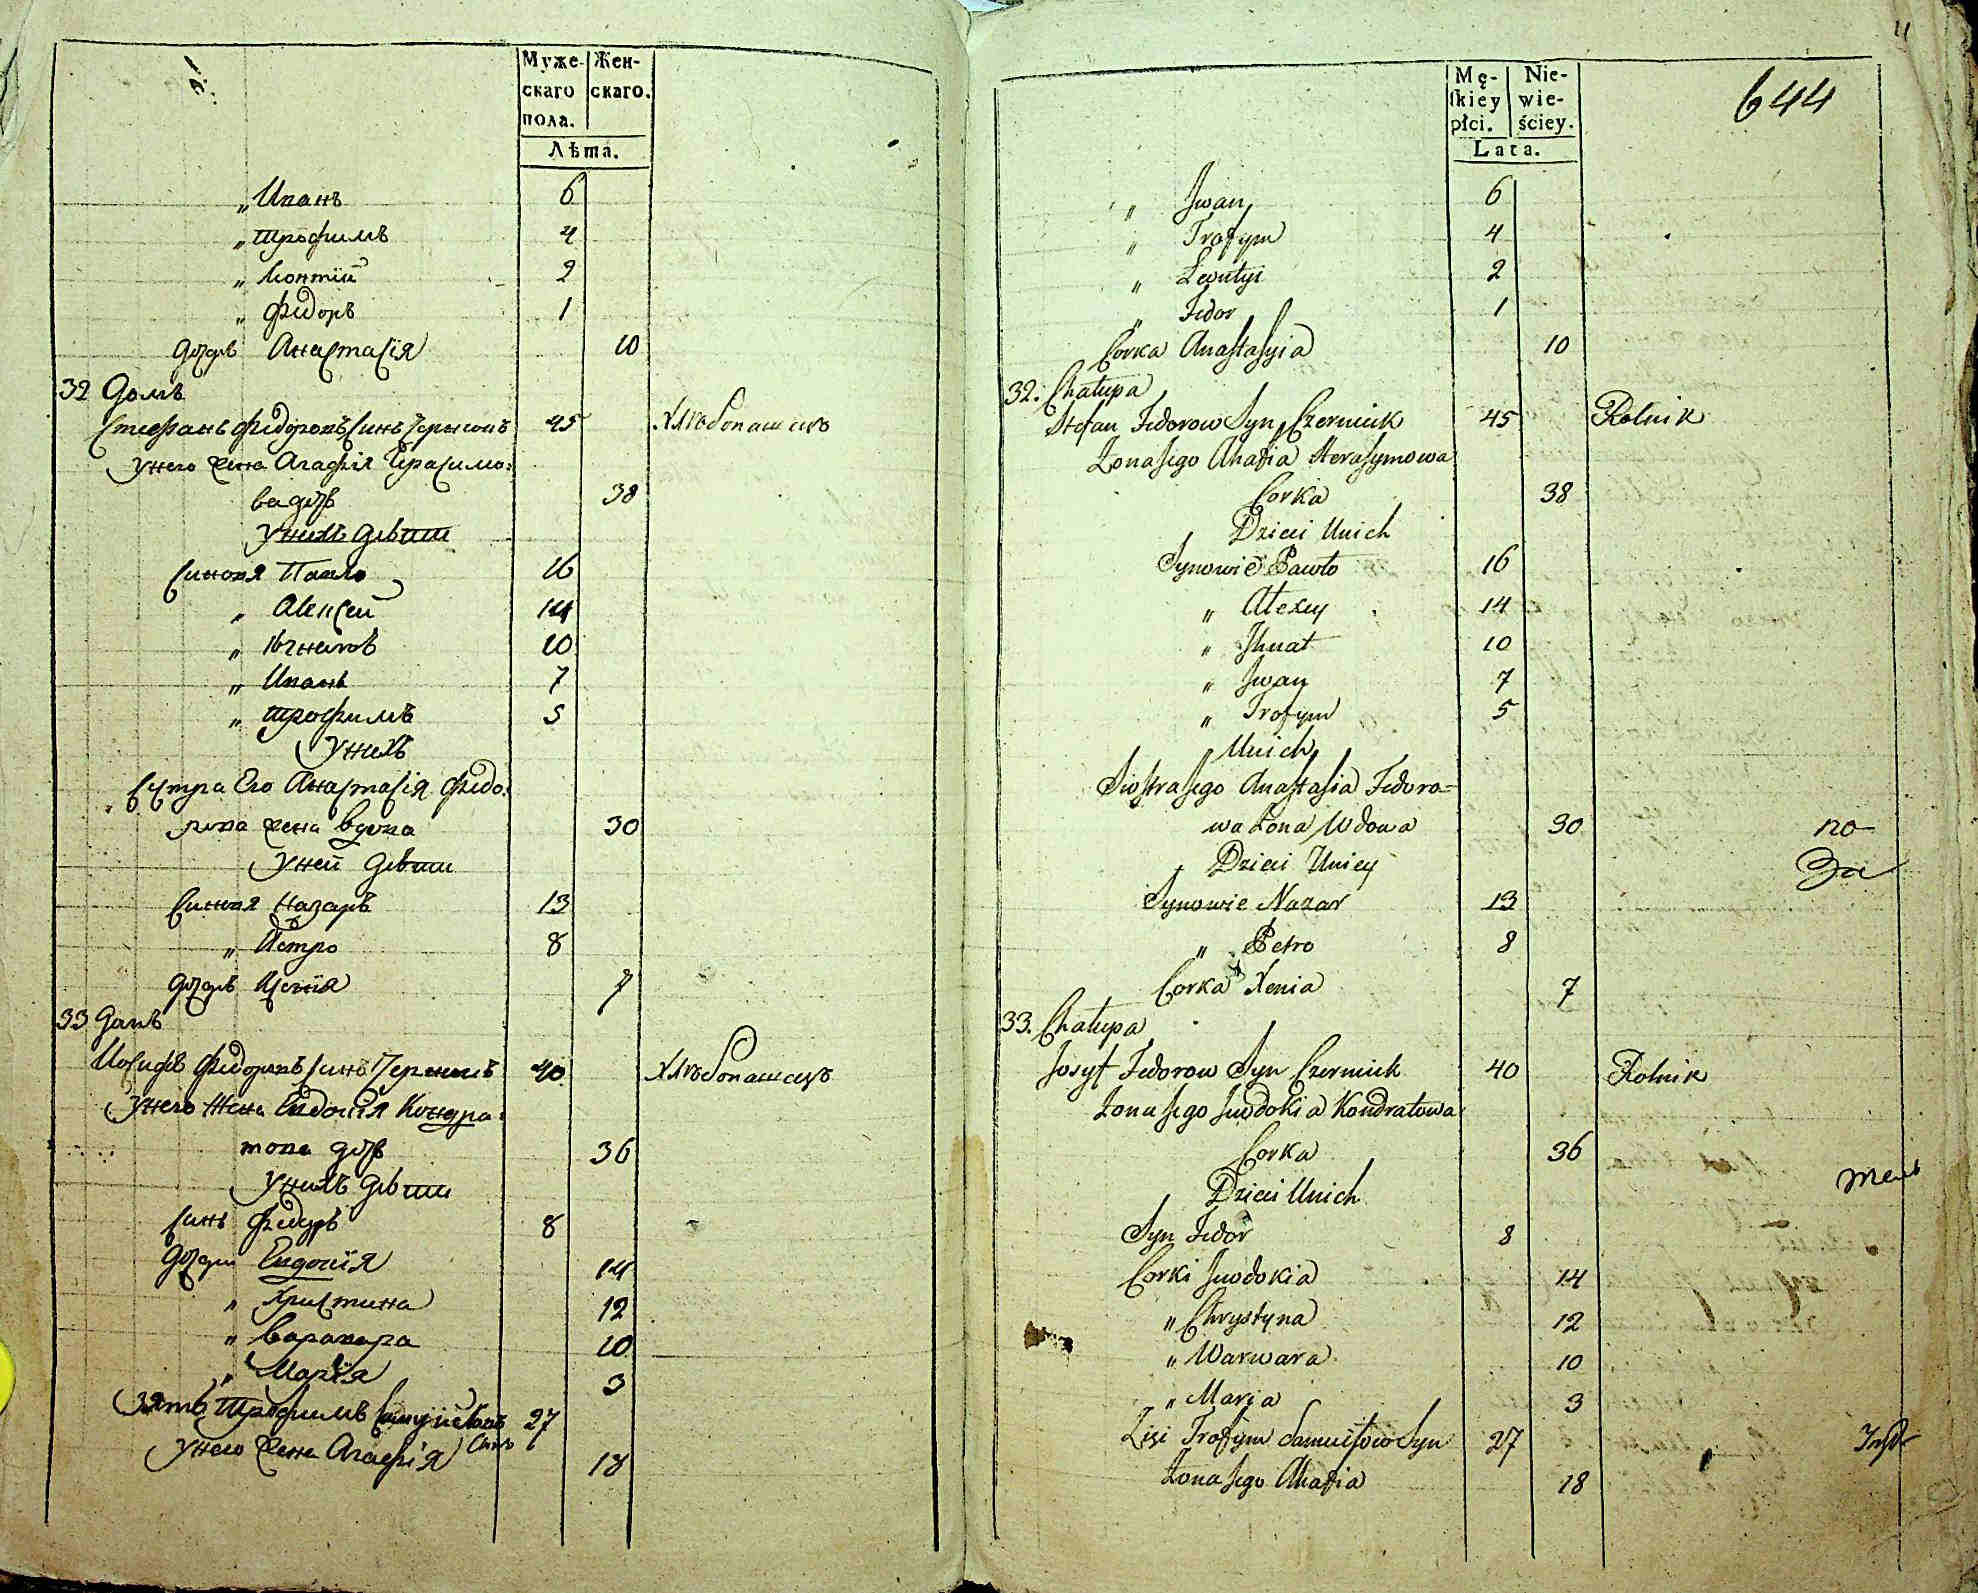 Муже- Жен-
скаго скаго.
пола.
Лѣта.
„ Иванъ 6
„ Трофимъ 4
„ Леонтій 2
„ Федоръ 1
дочь Анастасія 10
32 Домъ
Стефанъ Федоровъ Синъ 45 Хлѣбопашецъ
Унего жена Агафія Герасимо:
ва дочь 38
Унихъ Дѣти
Синовя Павло 16
„ Алексей 14
„ Игнатъ 10
„ Иванъ 7
„ Трофимъ 5
Унихъ
Сестра Его Анастасія Федо:
рова жена вдова 30
Уней Дѣти
Синовя Назаръ 13
„ Петро 8
дочь Ксенія 7
33 Домъ
Іосифъ Федоровъ Синъ 40 Хлѣбопашецъ
Унего Жена Евдокія Кондра:
това дочь 36
Унихъ Дѣти
Синъ Федоръ 8
Дочери Евдокія 14
„ Христина 12
„ Варвара 10
„ Марія 3
Зять Трофимъ 27
Синъ
Унего жена Агафія 18
11
644
Mę- Nie-
skiey wie-
płci. ściey.
Lata.
„ Jwan 6
„ Trofym 4
„ Lewutyi 2
„ Fedor 1
Corka Anastasyia 10
32. Chałupa
Stefan Fedorow Syn Czerniuk 45 Rolnik
Zona Jego Ahafia Herasymowa
Corka 38
Dzieci Unich
Synowie Pawło 16
„ Alexey 14
„ Jhnat 10
„ Jwan 7
„ Trofym 5
Unich
Siostra Jego Anastasia Fedoro=
wa Zona Wdowa 30
по
Dzieci Uniey
За
Synowie Nazar 13
„ Petro 8
Corka Xenia 7
33. Chałupa
Josyf Fedorow Syn Czerniuk 40 Rolnik
Zona Jego Jwdokia Kondratowa
Corka 36
Dzieci Unich
Syn Fedor 8
Corki Jwdokia 14
„ Chrystyna 12
„ Warwara 10
„ Marya 3
Trofym Samuiłow Syn 27
Zona Jego Ahafia 18